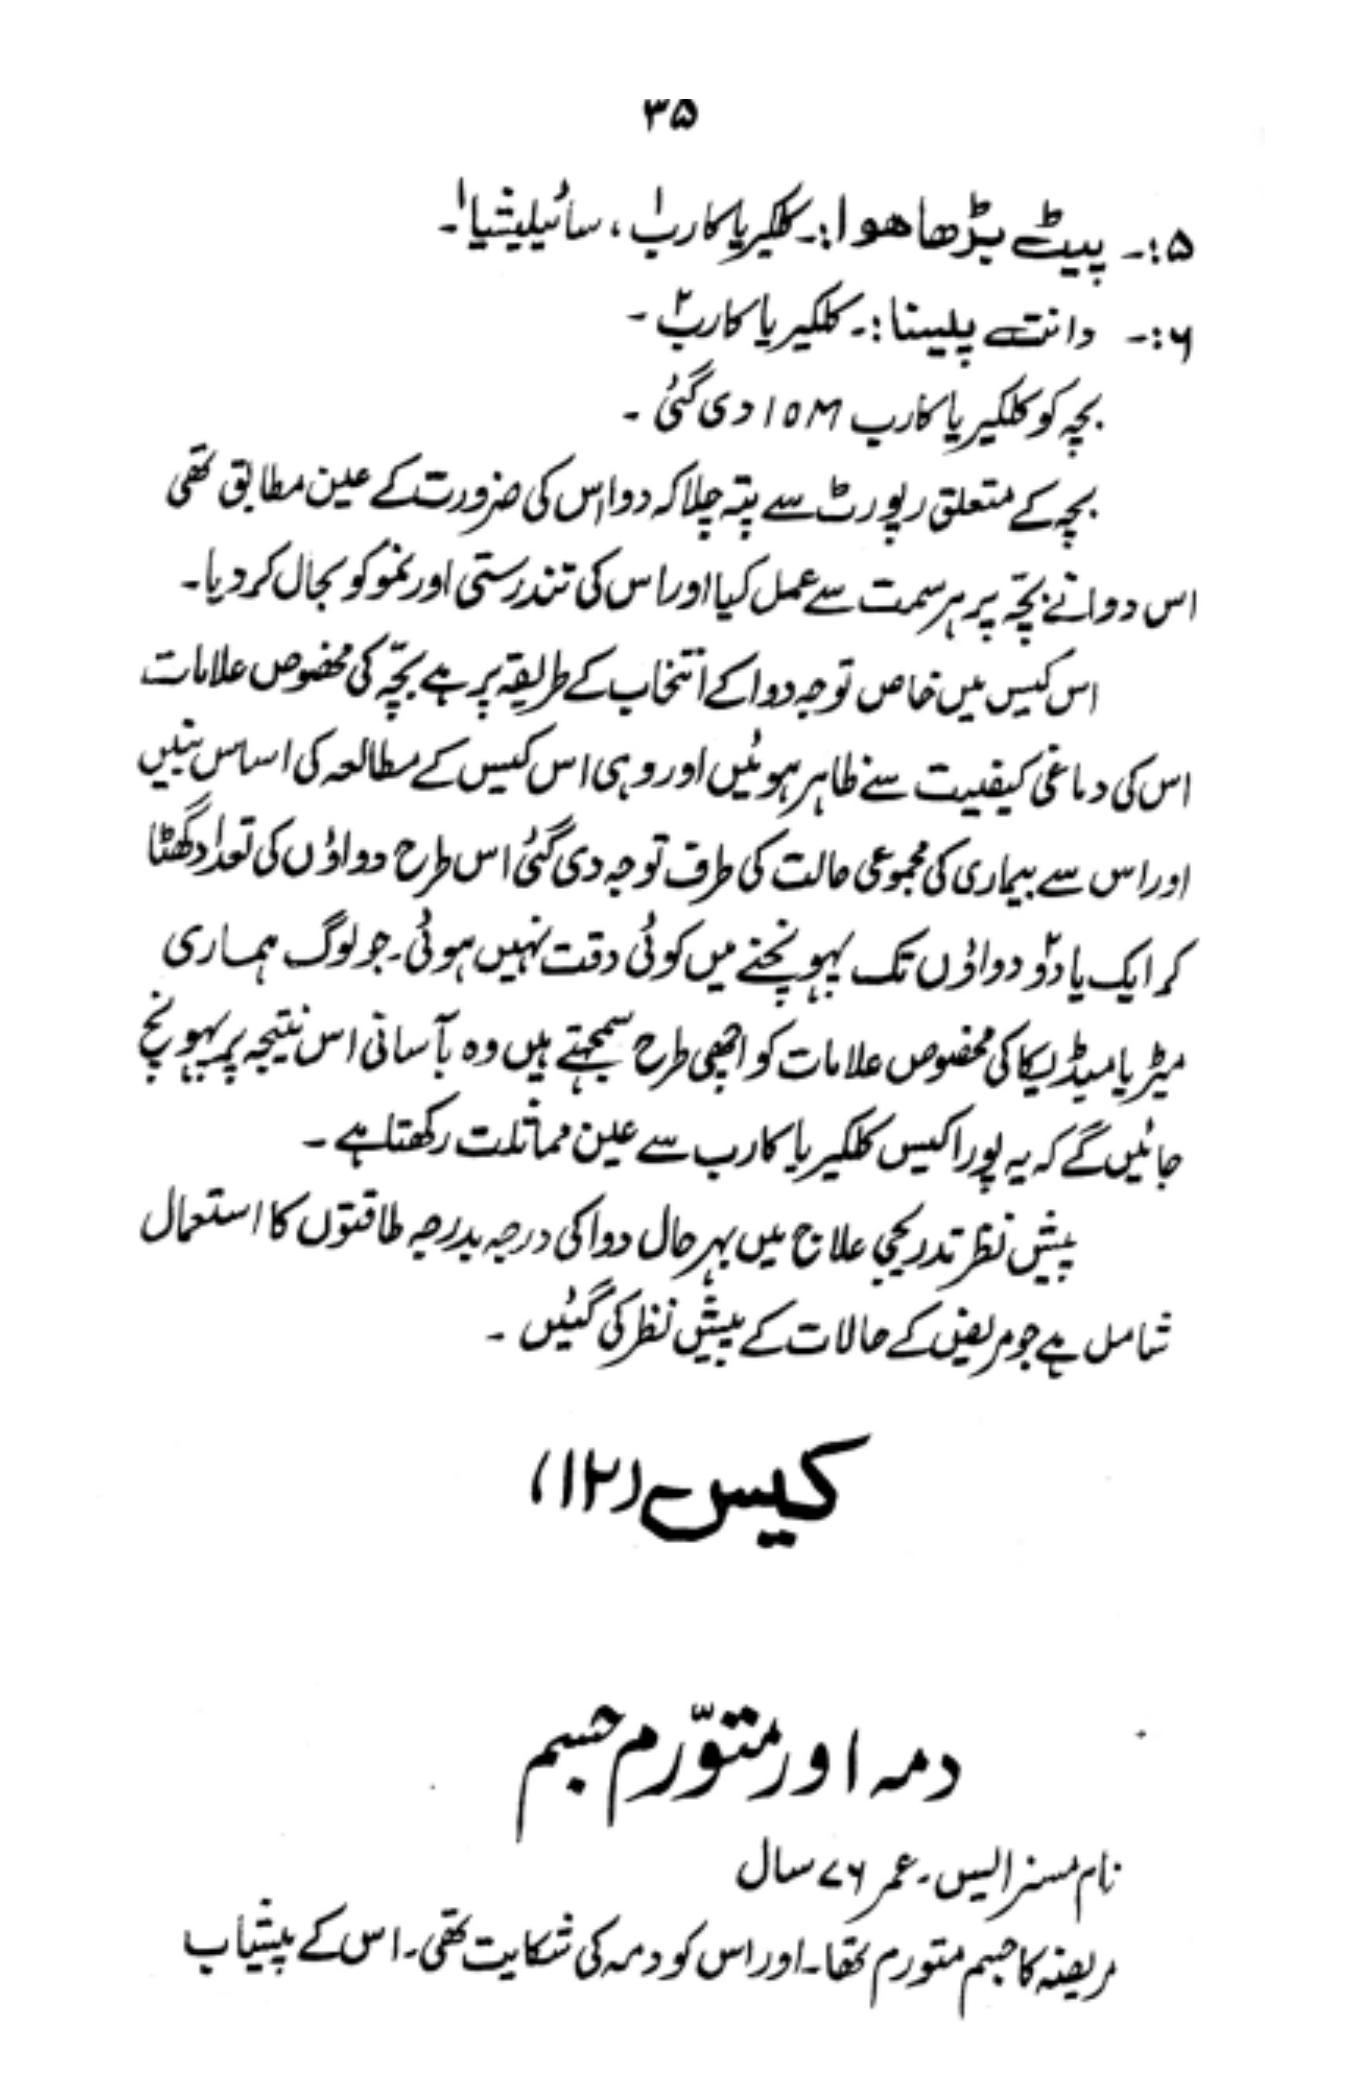 ۳۵
۵:۔ پیٹ بڑھا ہوا:۔ کلکیریا کارب۱، سائیلیشیا۱۔
۶:۔ دانت پیسنا:۔ کلکیریا کارب۲۔
بچہ کو کلکیریا کارب 10M دی گئی۔
بچہ کے متعلق رپورٹ سے پتہ چلا کہ دوا اس کی ضرورت کے عین مطابق تھی
اس دوا نے بچّہ پر ہر سمت سے عمل کیا اور اس کی تندرستی اور نمو کو بحال کر دیا۔
اس کیس میں خاص توجہ دوا کے انتخاب کے طریقہ پر ہے بچّہ کی مخصوص علامات
اس کی دماغی کیفیت سے ظاہر ہوئیں اور وہی اس کیس کے مطالعہ کی اساس بنیں
اور اس سے بیماری کی مجموعی حالت کی طرف توجہ دی گئی اس طرح دواؤں کی تعداد گھٹا
کر ایک یا دو۲ دواؤں تک پہونچنے میں کوئی دقت نہیں ہوئی۔ جو لوگ ہماری
میٹریا میڈیکا کی مخصوص علامات کو اچھی طرح سمجھتے ہیں وہ بآسانی اس نتیجہ پر پہونچ
جائیں گے کہ یہ پورا کیس کلکیریا کارب سے عین مماثلت رکھتا ہے۔
پیش نظر تدریجی علاج میں بہر حال دوا کی درجہ بدرجہ طاقتوں کا استعمال
شامل ہے جو مریض کے حالات کے پیش نظر کی گئیں۔
کیس (۱۲)
دمہ اور متورّم جسم
نام مسز ایس۔ عمر ۷۶ سال
مریضہ کا جسم متورم تھا۔ اور اس کو دمہ کی شکایت تھی۔ اس کے پیشاب